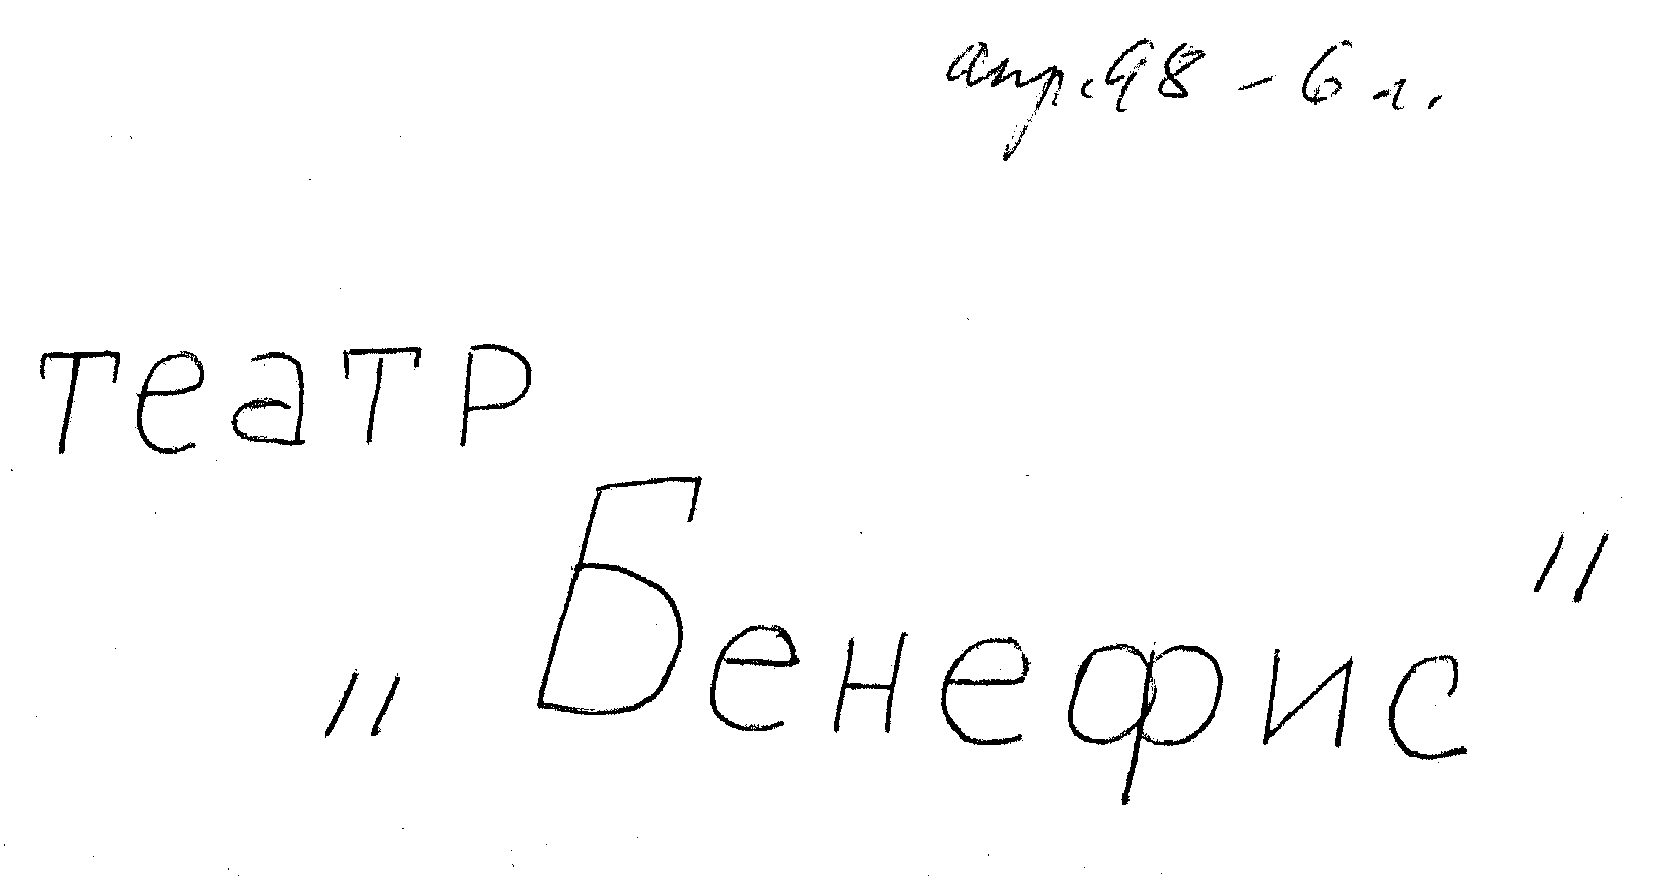 апр. 98 - 6 л.
театр
"Бенефис"